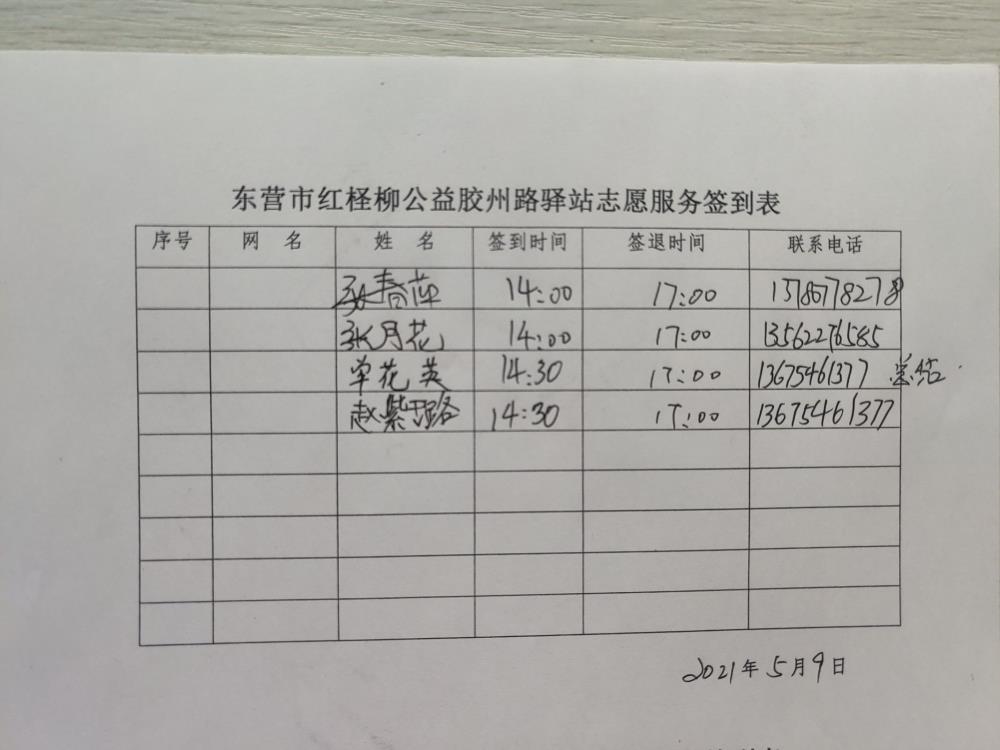 东营市红柽柳公益胶州路驿站志愿服务签到表
序号 网 名 姓 名 签到时间 签退时间 联系电话
张春萍 14:00 17:00
张月花 14:00 17:00 13562276585
单花英 14:30 17:00 13675461377 总结
赵紫璐 14:30 17:00 13675461377
2021年5月9日